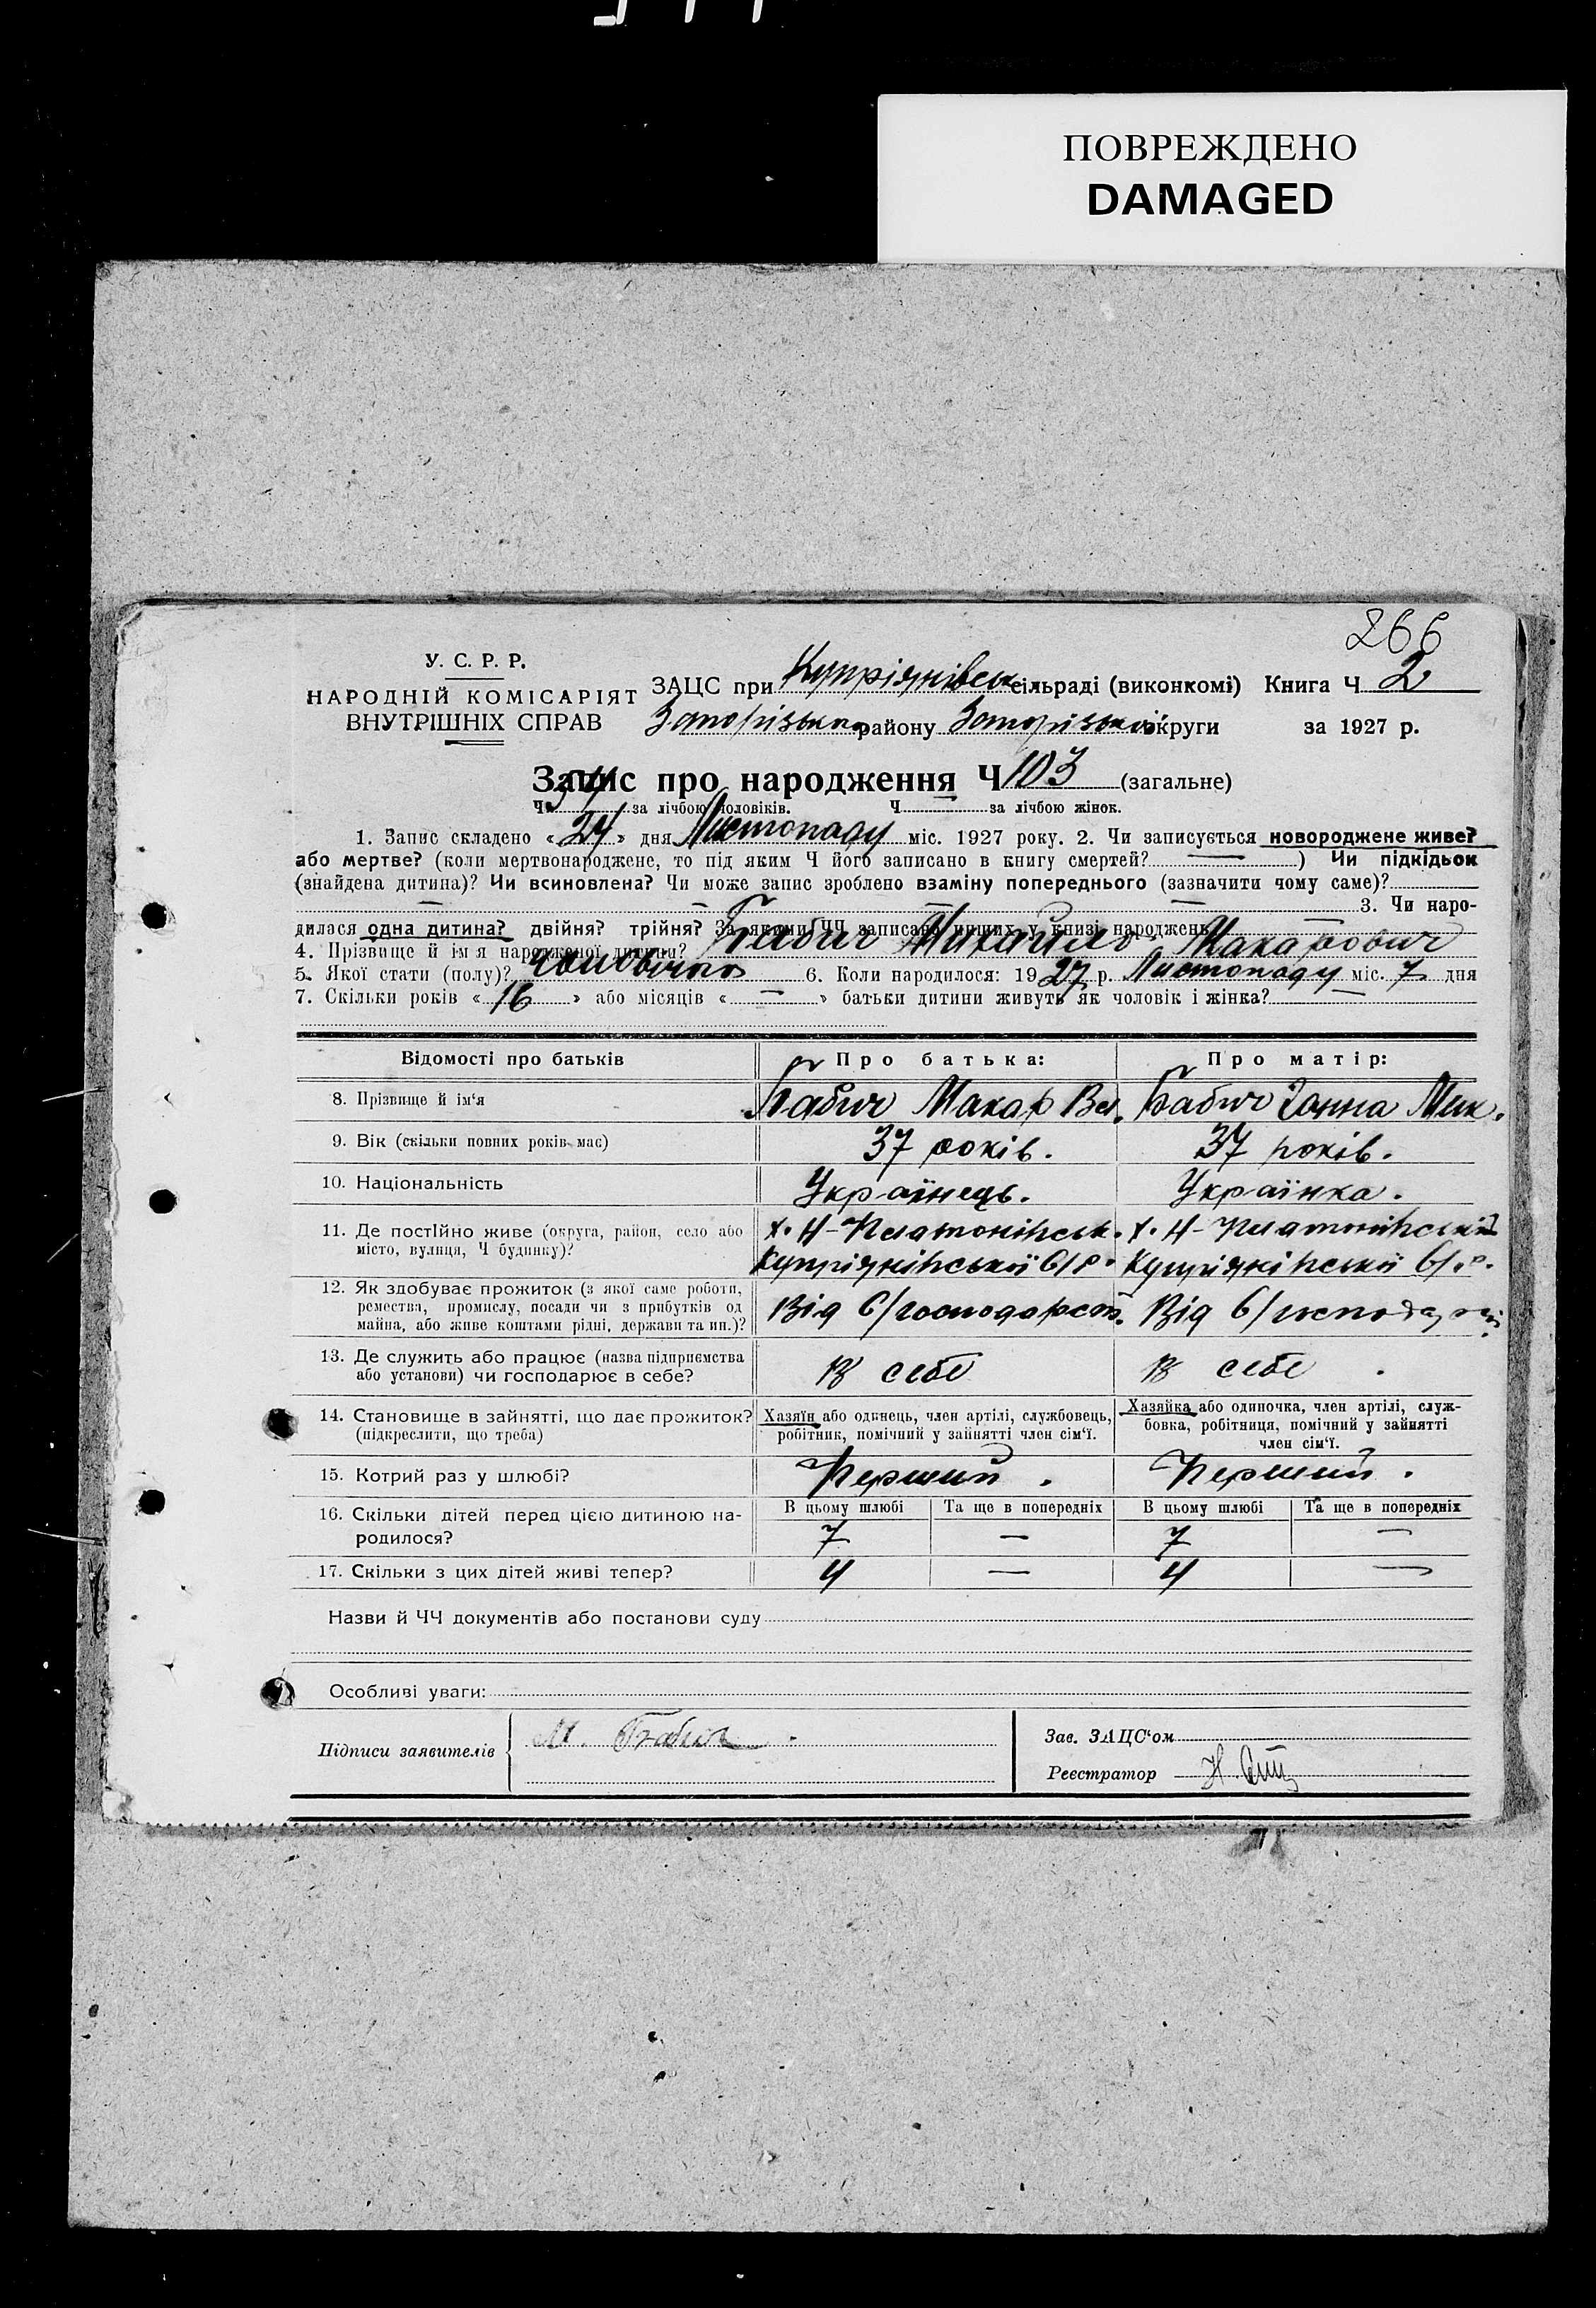 ПОВРЕЖДЕНО
DAMAGED
266
У. С. Р. Р.
НАРОДНІЙ КОМІСАРІЯТ
ВНУТРІШНІХ СПРАВ
ЗАЦС при Купріянівськ сільраді (виконкомі) Книга Ч 2
Запорізького району Запорізької округи за 1927 р.
Запис про народження Ч 103 (загальне)
Ч за лічбою чоловіків. Ч — за лічбою жінок.
1. Запис складено « 24 » дня Листопаду міс. 1927 року. 2. Чи записується новороджене живе?
або мертве? (коли мертвонароджене, то під яким Ч його записано в книгу смертей? — ) Чи підкідьок
(знайдена дитина)? Чи всиновлена? Чи може запис зроблено взаміну попереднього (зазначити чому саме)?
— — — 3. Чи наро-
дилася одна дитина? двійня? трійня? За якими ЧЧ записано инших у книзі народжень —
4. Прізвище й ім'я народженої дитини? Бабич Михайло Макарович
5. Якої стати (полу)? чоловічого 6. Коли народилося: 1927 р. Листопаду міс. 7 дня
7. Скільки років « 16 » або місяців « — » батьки дитини живуть як чоловік і жінка? —
Відомості про батьків Про батька: Про матір:
8. Прізвище й ім'я Бабич Макар Вас. Бабич Ганна Мик.
9. Вік (скільки повних років має) 37 років. 37 років.
10. Національність Українець. Українка.
11. Де постійно живе (округа, район, село або
місто, вулиця, Ч будинку)? х. Н-Платонівськ. х. Н-Платонівський
Купріянівської С/Р. Купріянівської С/Р.
12. Як здобуває прожиток (з якої саме роботи,
ремества, промислу, посади чи з прибутків од
майна, або живе коштами рідні, держави та ин.)? Від С/господарств. Від С/господар
13. Де служить або працює (назва підприємства
або установи) чи господарює в себе? В себе В себе.
14. Становище в зайнятті, що дає прожиток?
(підкреслити, що треба)
Хазяїн або одинець, член артілі, службовець,
робітник, помічний у зайнятті член сім'ї.
Хазяйка або одиночка, член артілі, служ-
бовка, робітниця, помічний у зайнятті
член сім'ї.
15. Котрий раз у шлюбі? Перший. Перший.
16. Скільки дітей перед цією дитиною на-
родилося?
В цьому шлюбі Та ще в попередніх В цьому шлюбі Та ще в попередніх
7 — 7 —
17. Скільки з цих дітей живі тепер? 4 — 4 —
Назви й ЧЧ документів або постанови суду
Особливі уваги:
Підписи заявителів М. Бабич.
Зав. ЗАЦС'ом
Реєстратор